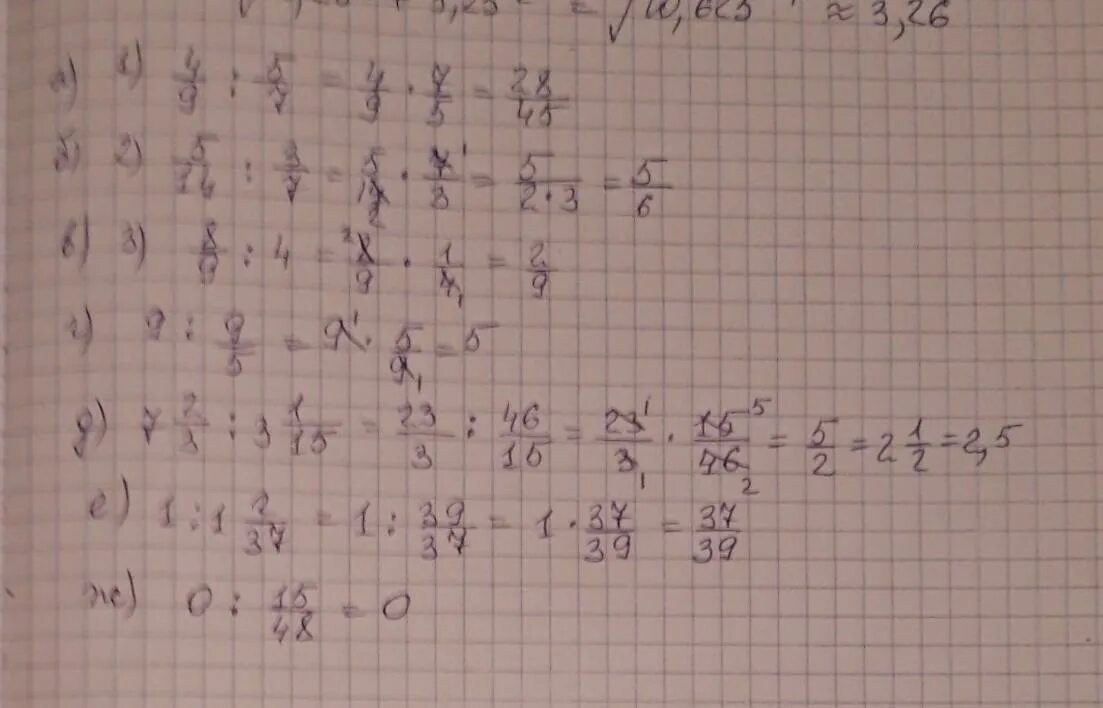 = √10,625 ≈ 3,26
а) 1) 4/9 : 5/7 = 4/9 · 7/5 = 28/45
б) 2) 5/14 : 3/7 = 5/14 2 · 7 1/3 = 5/2·3 = 5/6
в) 3) 8/9 : 4 = 2 8/9 · 1/4 1 = 2/9
г) 9 : 9/5 = 9 1 · 5/9 1 = 5
д) 7 2/3 : 3 1/15 = 23/3 : 46/15 = 23 1/3 1 · 15 5/46 2 = 5/2 = 2 1/2 = 2,5
е) 1 : 1 2/37 = 1 : 39/37 = 1 · 37/39 = 37/39
ж) 0 : 15/48 = 0